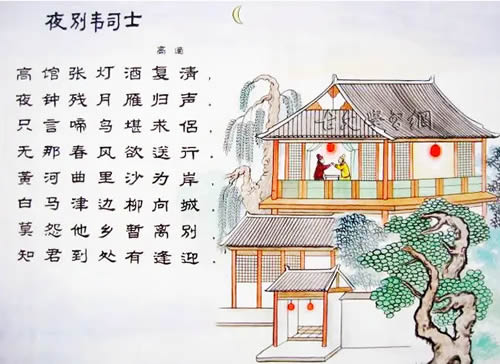 夜别韦司士
高适
高馆张灯酒复清，
夜钟残月雁归声。
只言啼鸟堪求侣，
无那春风欲送行。
黄河曲里沙为岸，
白马津边柳向城。
莫怨他乡暂离别，
知君到处有逢迎。